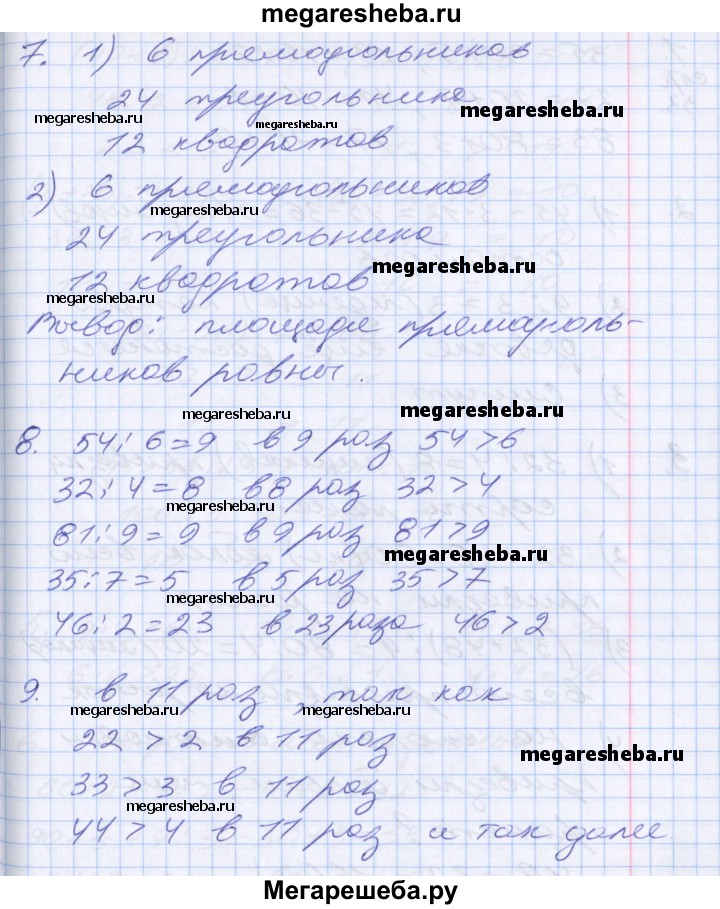 megaresheba.ru
7. 1) 6 прямоугольников
24 треугольника
megaresheba.ru megaresheba.ru megaresheba.ru
12 квадратов
2) 6 прямоугольников
megaresheba.ru
24 треугольника
megaresheba.ru
12 квадратов
megaresheba.ru
Вывод: площади прямоуголь-
ников равны.
megaresheba.ru megaresheba.ru
8. 54:6=9 в 9 раз 54>6
32:4=8 в 8 раз 32>4
megaresheba.ru
81:9=9 в 9 раз 81>9
megaresheba.ru
35:7=5 в 5 раз 35>7
megaresheba.ru
46:2=23 в 23 раза 46>2
9. в 11 раз, так как
megaresheba.ru megaresheba.ru
22>2 в 11 раз
megaresheba.ru
33>3 в 11 раз
megaresheba.ru
44>4 в 11 раз и так далее.
Мегарешеба.ру